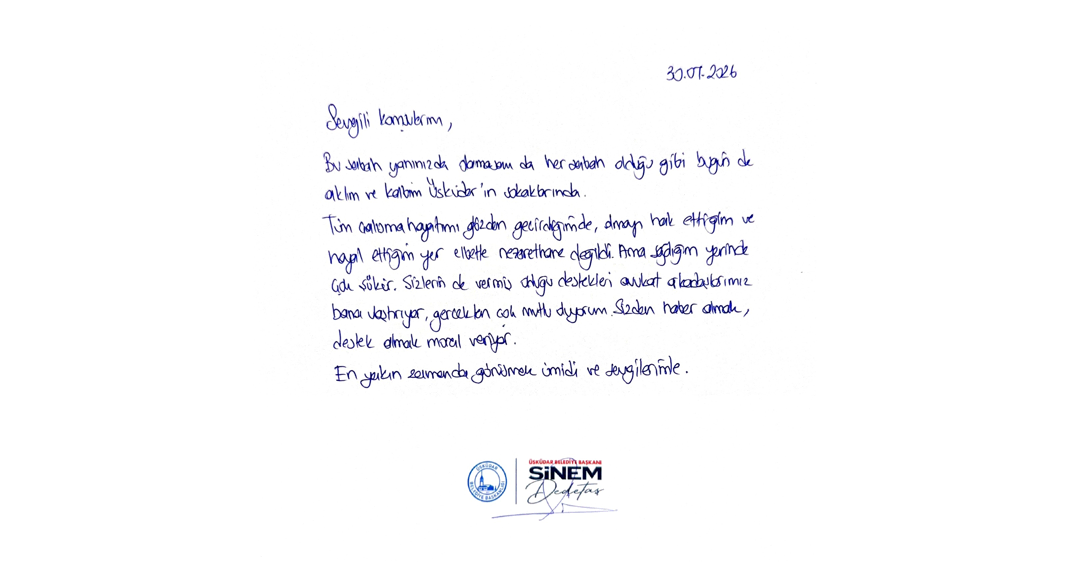 30.07.2026
Sevgili komşularım,
Bu sabah yanınızda olamasam da her sabah olduğu gibi bugün de
aklım ve kalbim Üsküdar'ın sokaklarında.
Tüm çalışma hayatımı gözden geçirdiğimde, olmayı hak ettiğim ve
hayal ettiğim yer elbette nezarethane değildi. Ama sağlığım yerinde
çok şükür. Sizlerin de vermiş olduğu destekleri avukat arkadaşlarımız
bana ulaştırıyor, gerçekten çok mutlu oluyorum. Sizden haber almak,
destek almak moral veriyor.
En yakın zamanda görüşmek ümidi ve sevgilerimle.
ÜSKÜDAR BELEDİYE BAŞKANLIĞI
ÜSKÜDAR BELEDİYE BAŞKANI
SİNEM
Dedetaş